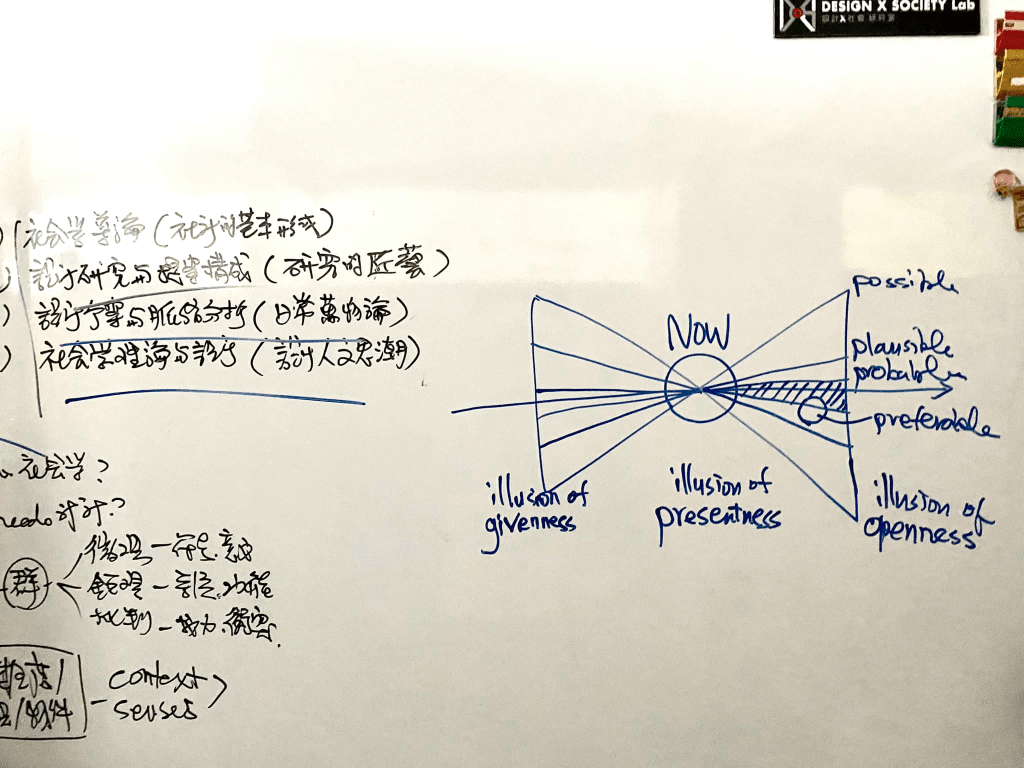 DESIGN X SOCIETY Lab
設計X社會 研究室
社会学導論 (社計的基本形成)
設計研究与提案構成 (研究的匠藝)
設計 与脈絡分析 (日常萬物論)
社会学理論与設计 (設計人文思潮)
社会学?
need 计?
群
微观 —
鉅观 —
批判 —
context
senses
NOW
possible
plausible
probable
preferable
illusion of
givenness
illusion of
presentness
illusion of
openness